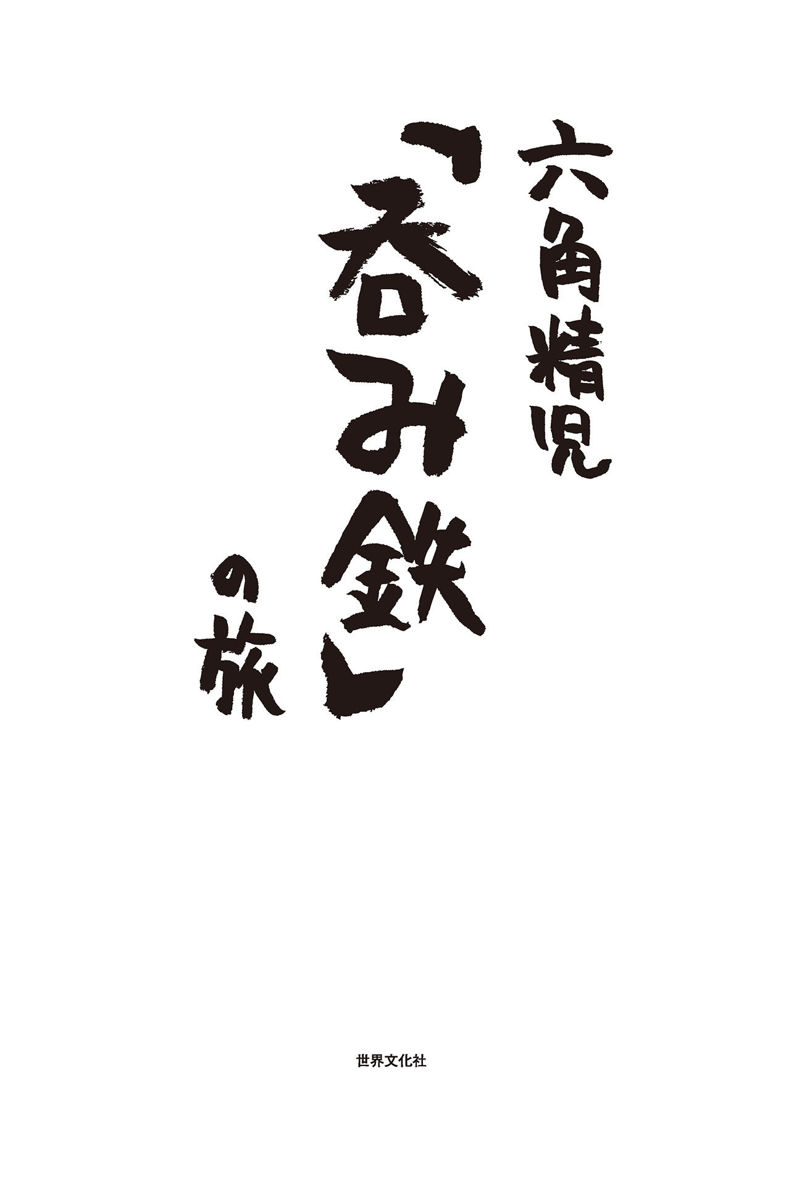 六角精児
「呑み鉄」
の旅
世界文化社